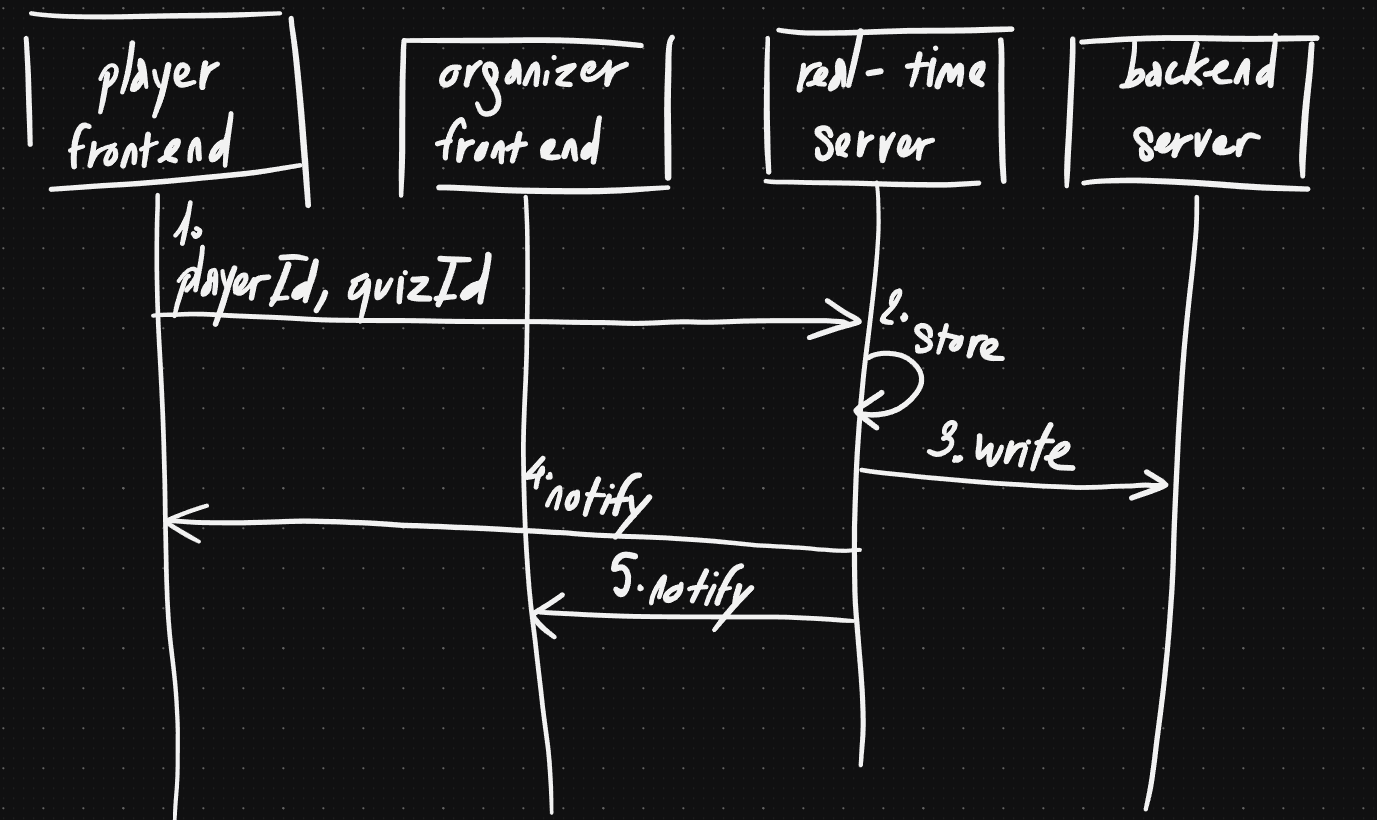 player
frontend
organizer
frontend
real-time
server
backend
server
1.
playerId, quizId
2. store
3. write
4. notify
5. notify